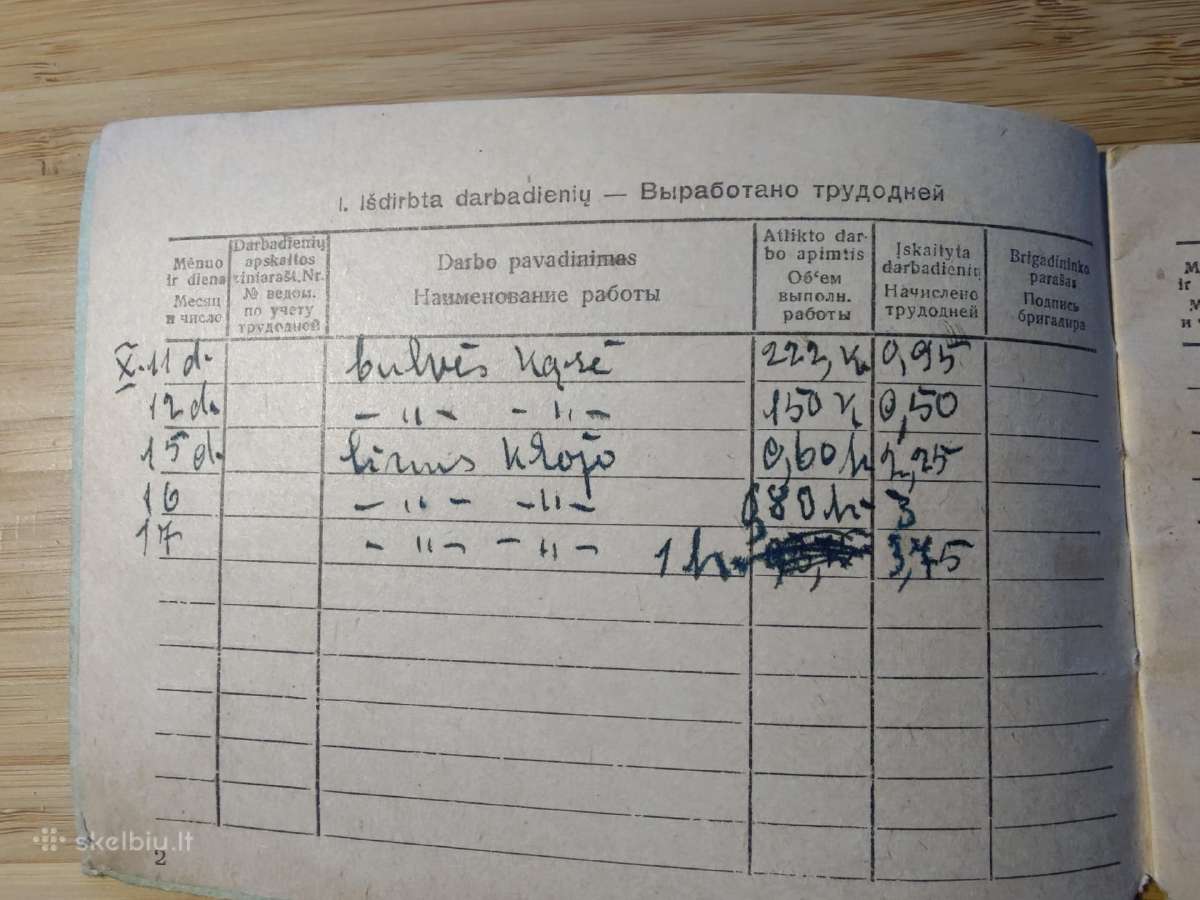 I. Išdirbta darbadienių — Выработано трудодней
Mėnuo ir diena Месяц и число
Darbadienių apskaitos žiniarašt. Nr. № ведом. по учету трудодней
Darbo pavadinimas Наименование работы
Atlikto darbo apimtis Об‘ем выполн. работы
Įskaityta darbadienių Начислено трудодней
Brigadininko parašas Подпись бригадира
X. 11 d. bulvės kasė 222, k. 0,95
12 d. — " — — " — 150 k 0,50
15 d. linus klojo 0,60 h 2,25
16 — " — — " — 0,80 h 3
17 — " — — " — 1 h 3,75
skelbiu.lt
2